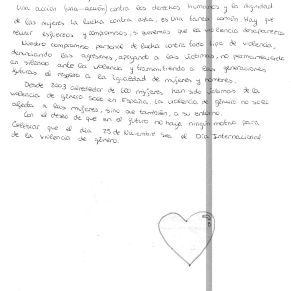 una acción (una acción) contra los derechos humanos y la dignidad
de las mujeres la lucha contra esta, es una tarea común Hay que
esfuerzos y compromisos, si queremos que la violencia desaparezca
Nuestro compromiso personal de lucha contra todo tipo de violencia,
denunciando las agresiones, apoyando a las víctimas, no permaneciendo
en silencio ante la violencia y transmitiendo a las generaciones
futuras el respeto a la igualdad de mujeres y hombres.
Desde 2003 alrededor de 600 mujeres han sido víctimas de la
violencia de género solo en España. La violencia de género no solo
a las mujeres, sino que también, a su entorno.
Con el deseo de que en el futuro no haya ningún motivo para
celebrar que el día 25 de Noviembre sea el Día Internacional
de la violencia de género.